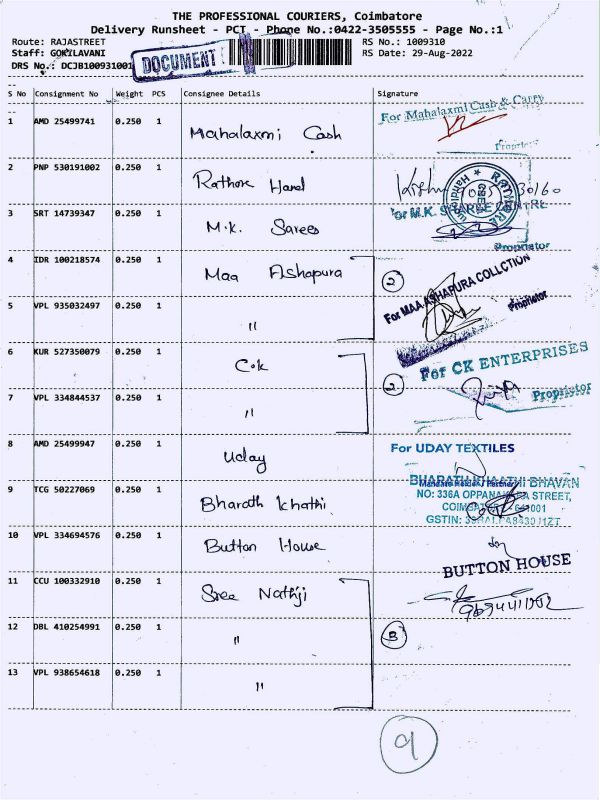 THE PROFESSIONAL COURIERS, Coimbatore
Delivery Runsheet - PCT - Phone No.:0422-3505555 - Page No.:1
Route: RAJASTREET RS No.: 1009310
Staff: GOKILAVANI RS Date: 29-Aug-2022
DRS No.: DCJB100931001
DOCUMENT
S No Consignment No Weight PCS Consignee Details Signature
1 AMD 25499741 0.250 1 Mahalaxmi Cash
For Mahalaxmi Cash & Carry
Proprietor
2 PNP 530191002 0.250 1 Rathore
RATHORE
3 SRT 14739347 0.250 1 M.K. Sarees
For M.K. SAREE CENTRE
Proprietor
4 IDR 100218574 0.250 1 Maa Ashapura
2
For MAA ASHAPURA COLLCTION
Proprietor
5 VPL 935032497 0.250 1 "
6 KUR 527350079 0.250 1 C.K
2
For CK ENTERPRISES
Proprietor
7 VPL 334844537 0.250 1 "
8 AMD 25499947 0.250 1 Uday
For UDAY TEXTILES
9 TCG 50227069 0.250 1 Bharath Khathi
BHARATH KHAATHI BHAVAN
NO: 336A OPPANAKARA STREET,
COIMBATORE - 641001
GSTIN:
10 VPL 334694576 0.250 1 Button House
for
BUTTON HOUSE
11 CCU 100332910 0.250 1 Sree Nathji
12 DBL 410254991 0.250 1 "
3
13 VPL 938654618 0.250 1 "
9